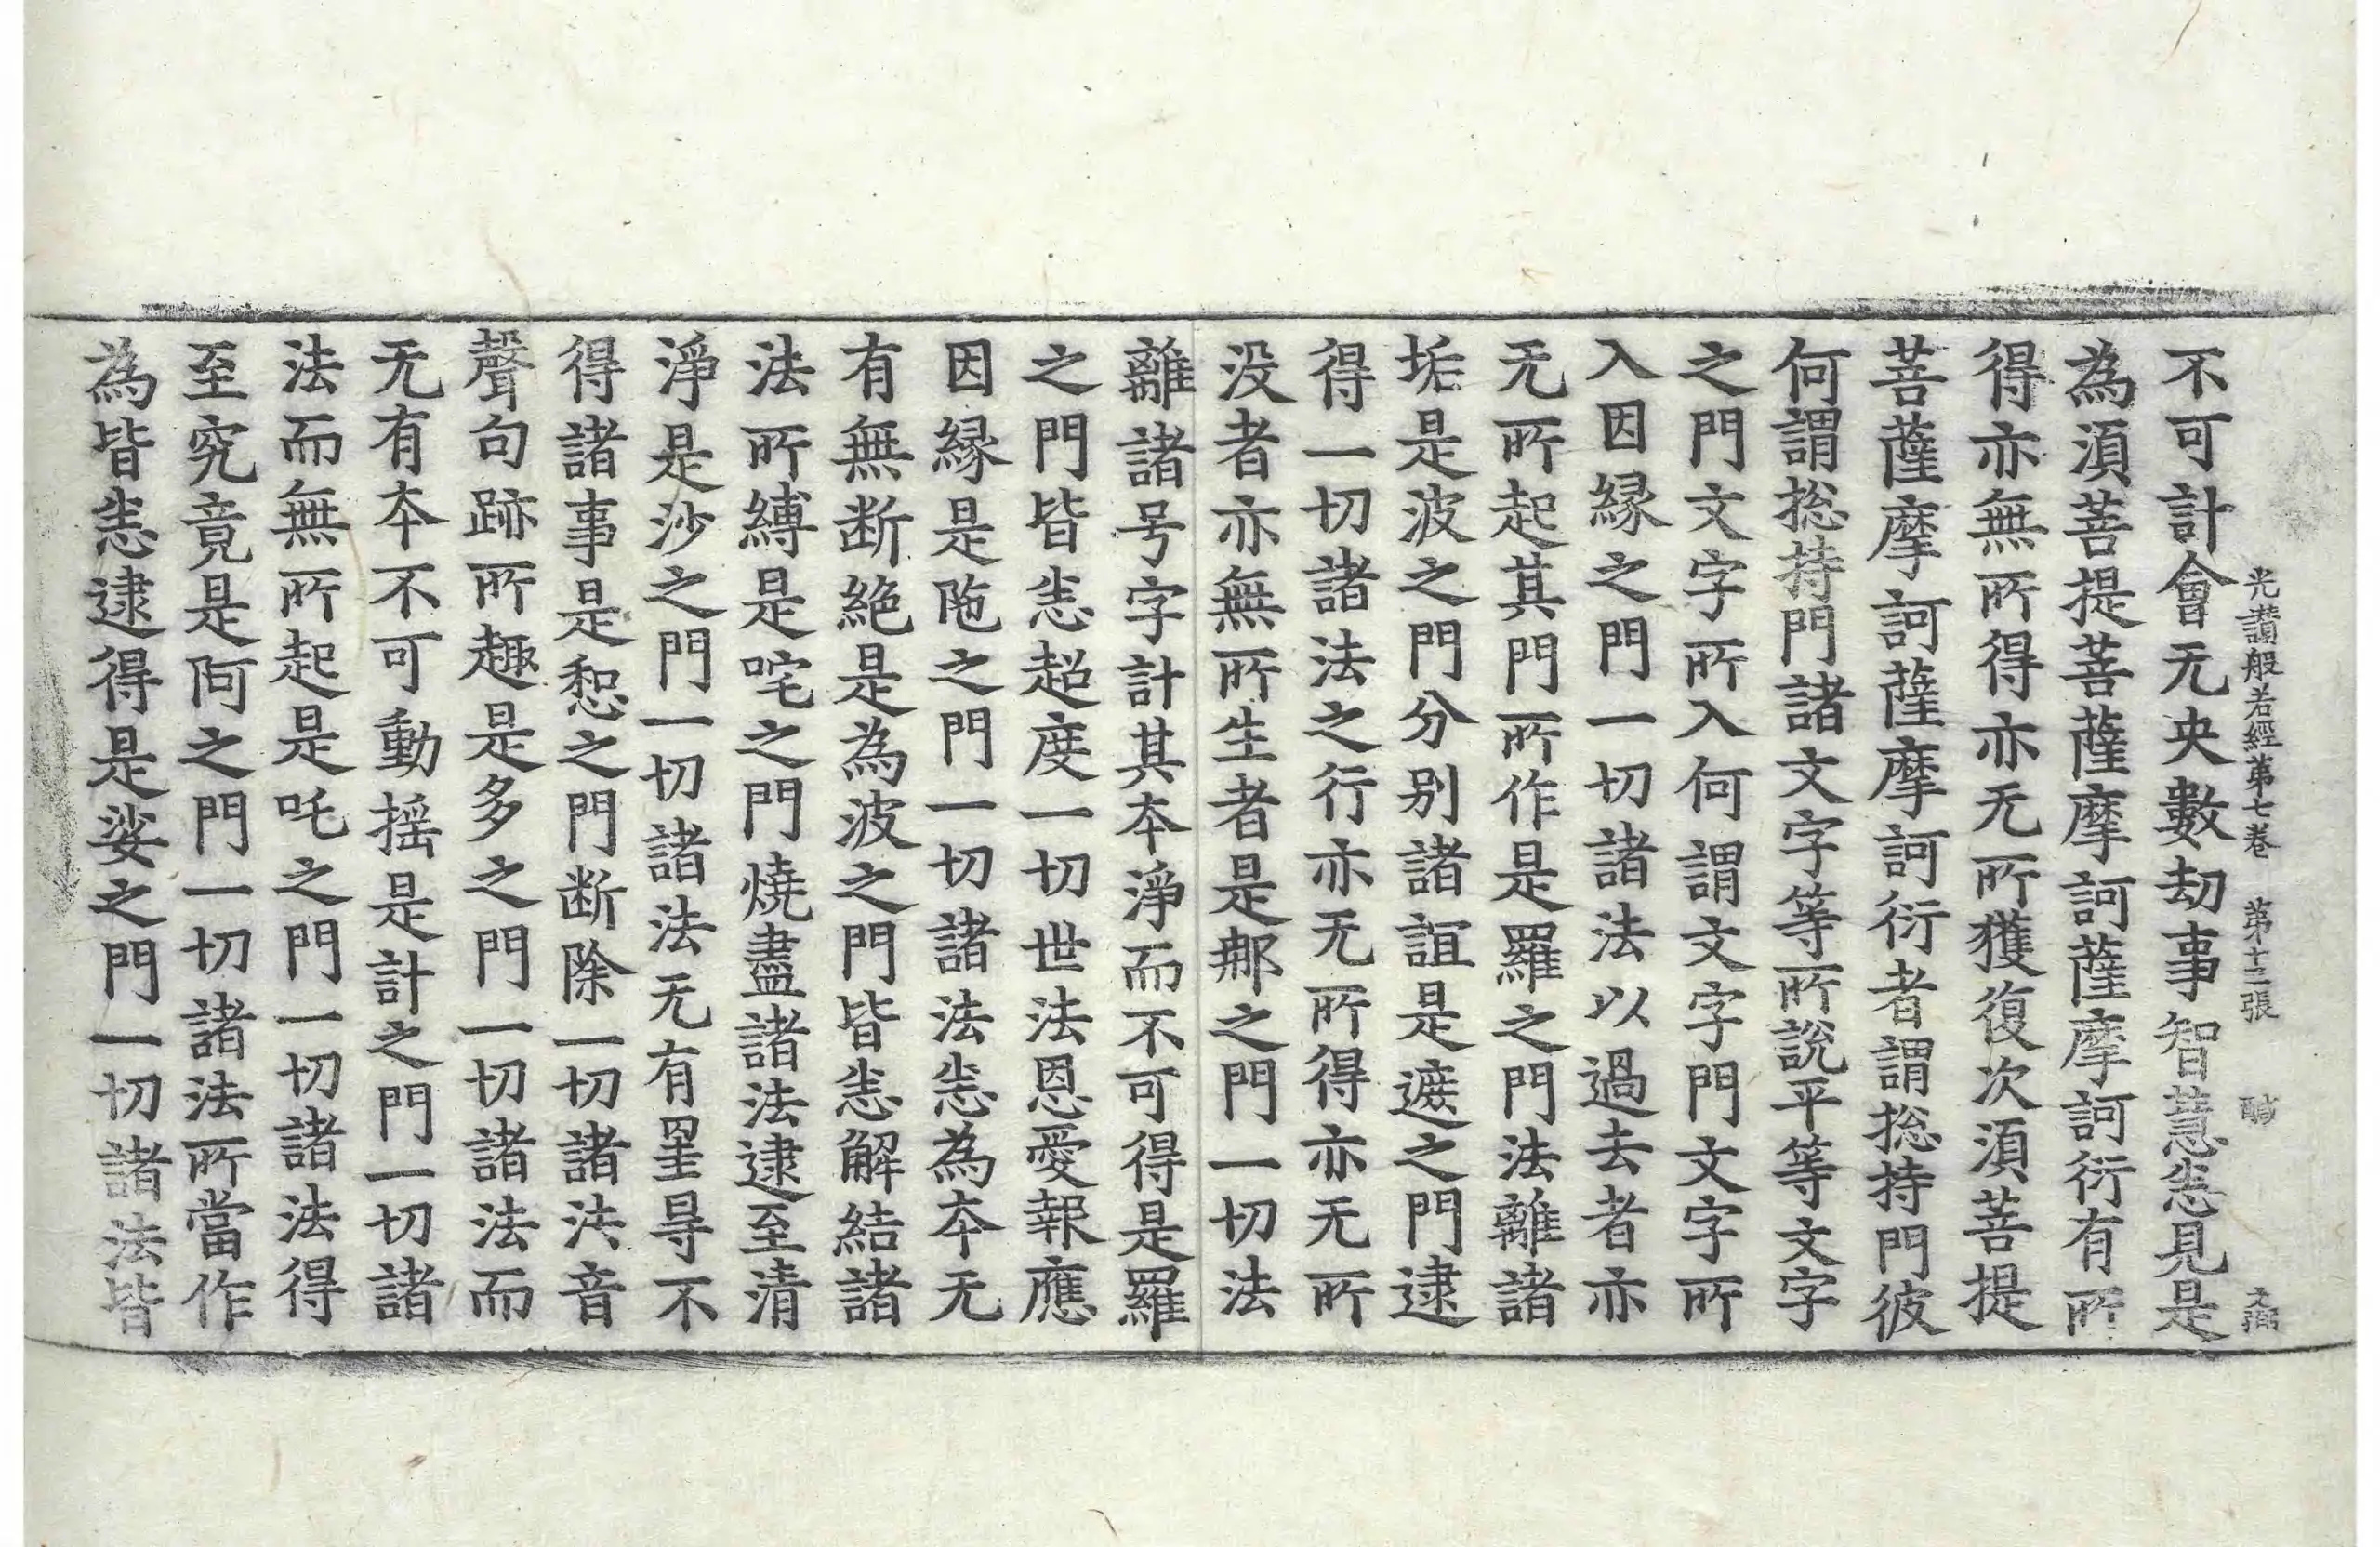 光讚般若經第七卷 第十三張 醎
不可計會无央數劫事智慧悉見是
為須菩提菩薩摩訶薩摩訶衍有所
得亦無所得亦无所獲復次須菩提
菩薩摩訶薩摩訶衍者謂捴持門彼
何謂捴持門諸文字等所說平等文字
之門文字所入何謂文字門文字所
入因縁之門一切諸法以過去者亦
无所起其門所作是羅之門法離諸
垢是波之門分別諸誼是遮之門逮
得一切諸法之行亦无所得亦无所
没者亦無所生者是那之門一切法
離諸号字計其夲淨而不可得是羅
之門皆悉超度一切世法恩愛報應
因縁是陁之門一切諸法悉為夲无
有無断絶是為波之門皆悉解結諸
法所縛是咤之門燒盡諸法逮至清
淨是沙之門一切諸法无有罣㝵不
得諸事是惒之門断除一切諸法音
聲句跡所趣是多之門一切諸法而
无有夲不可動揺是計之門一切諸
法而無所起是吒之門一切諸法得
至究竟是阿之門一切諸法所當作
為皆悉逮得是娑之門一切諸法皆